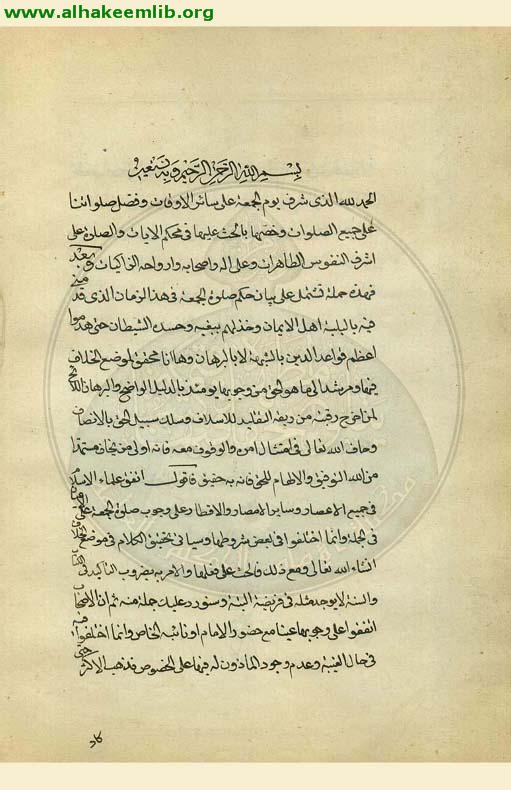 www.alhakeemlib.org
بسم الله الرحمن الرحيم وبه نستعين
الحمد لله الذى شرف يوم الجمعة على سائر الاوقات وفضل صلواتنا
على جميع الصلوات وخصها بالحث عليها فى محكم الايات والصلوة على
اشرف النفوس الطاهرات وعلى اله واصحابه وارواحه الزاكيات وبعد
فهذه جملة تشتمل على بيان حكم صلوة الجمعة فى هذا الزمان الذى قد منى
فيه بالبلية اهل الايمان وخذلهم ببغيه وحسده الشيطان حتى هدموا
اعظم قواعد الدين بالشبهة لا بالبرهان وها انا محقق لموضع الخلاف
فيها ومرشد الى ما هو الحق من وجوبها يومئذ بالدليل الواضح والبرهان
لمن اخرج رقبته من ربقة التقليد للاسلاف وسلك سبيل الحق بالانصاف
وخاف الله تعالى فى امتثال امره والوقوف معه فانه اولى من يخاف مستمدا
من الله التوفيق والالهام للحق فانه به حقيق فاقول اتفق علماء الاسلام
فى جميع الاعصار وساير الامصار والاقطار على وجوب صلوة الجمعة على الاعيان
فى الجملة وانما اختلفوا فى بعض شروطها وسياتى تحقيق الكلام فى موضع الخلاف
انشاء الله تعالى ومع ذلك فالحث على فعلها والامر به بضروب التاكيد فى الكتاب
والسنة لا يوجد مثله فى فريضة البتة وسنورد عليك جملة منه ثم ان الاصحاب
اتفقوا على وجوبها عينا مع حضور الامام او نائبه الخاص وانما اختلفوا فيه
فى حال الغيبة وعدم وجود الماذون له فيها على الخصوص فذهب الاكثر حتى
كاد